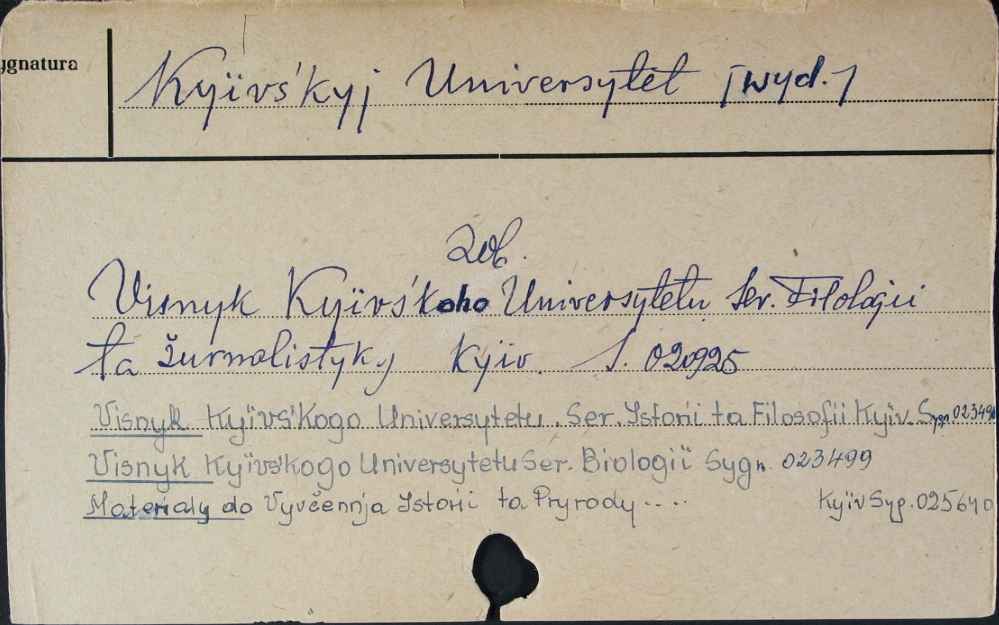 ygnatura
Kyïvs'kyj Universytet [wyd.]
Zob.
Visnyk Kyïvs'koho Universytetu Ser. Filologii
ta žurnalistyky Kyïv. S. 020925
Visnyk Kyïvs'kogo Universytetu. Ser. Istorii ta Filosofii Kyïv. Sygn. 023498
Visnyk Kyïvs'kogo Universytetu Ser. Biologiï Sygn. 023499
Materialy do Vyvčennja Istorii ta Pryrody .... Kyïv Syg. 025640